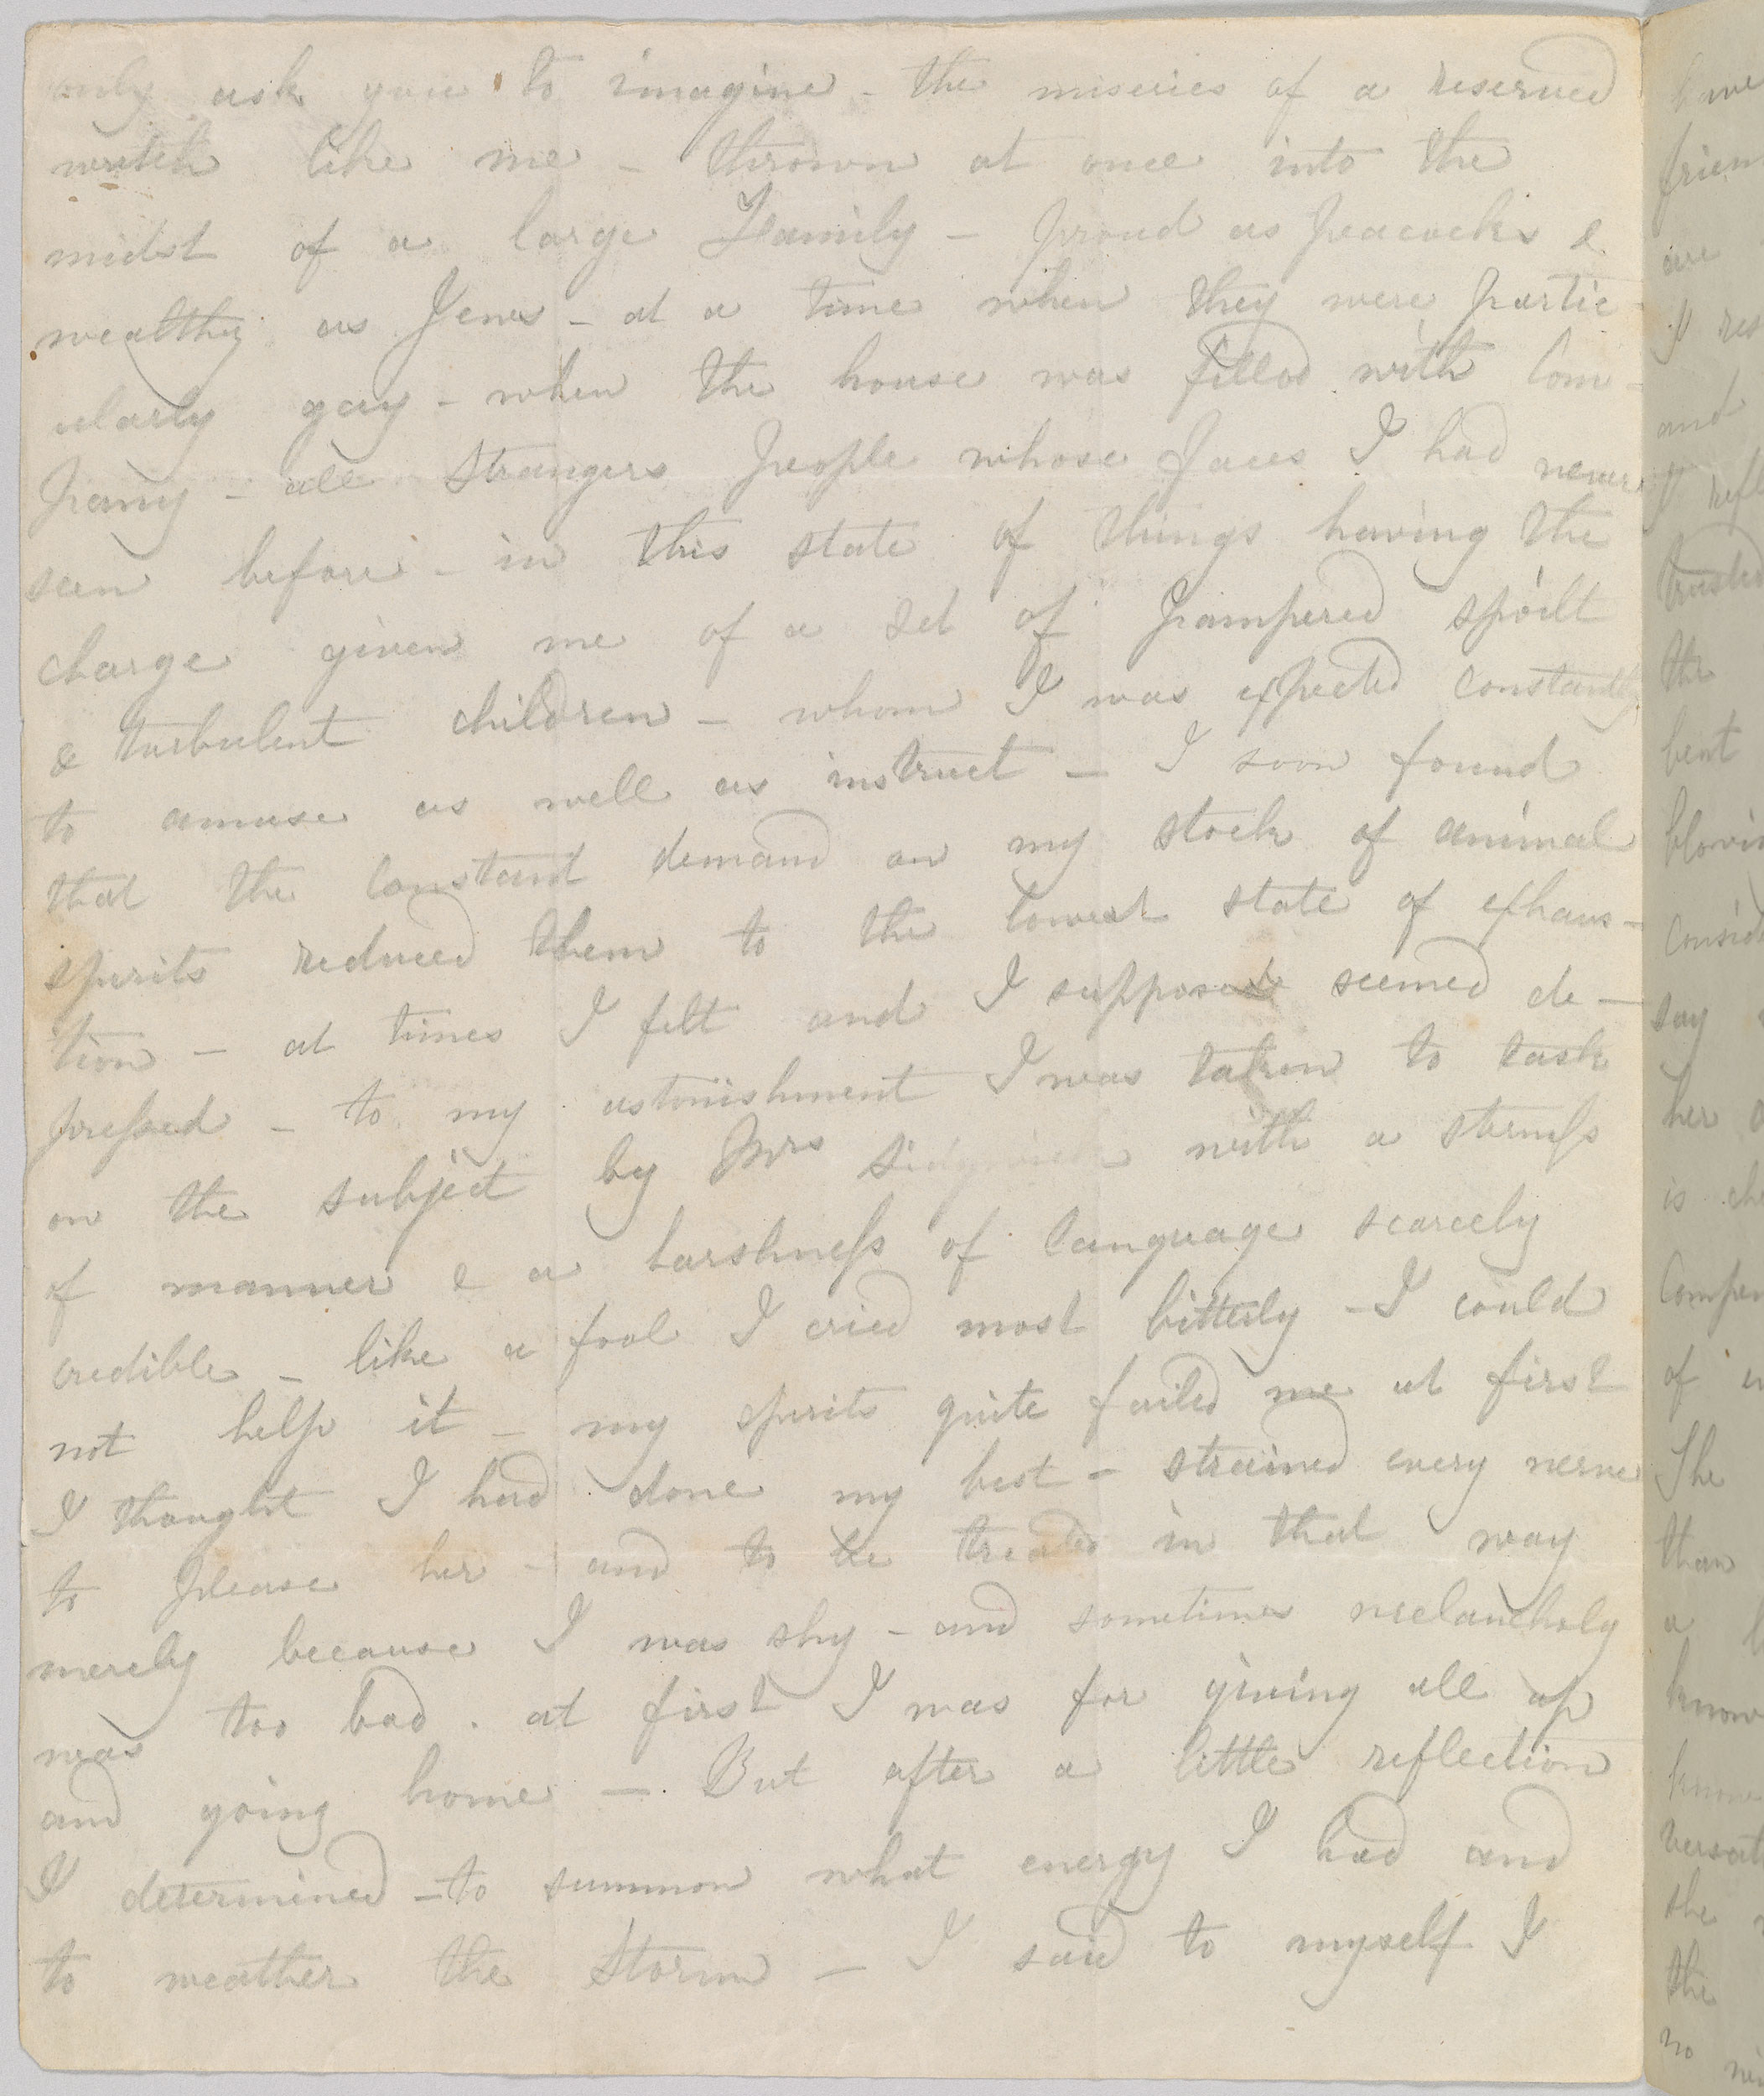 only ask you to imagine - the miseries of a reserved
wretch like me - thrown at once into the
midst of a large Family - proud as peacocks &
wealthy as Jews - at a time when they were partic-
ularly gay - when the house was filled with Com-
pany - all Strangers people whose faces I had never
seen before - in this state of things having the
charge given me of a set of pampered spoilt
& turbulent children - whom I was expected constantly
to amuse as well as instruct - I soon found
that the constant demand on my stock of animal
spirits reduced them to the lowest state of exhaus-
tion - at times I felt and I suppose seemed de-
pressed - to my astonishment I was taken to task
on the subject by Mrs Sidgwick with a sternness
of manner & a harshness of language scarcely
credible - like a fool I cried most bitterly - I could
not help it - my spirits quite failed me at first
I thought I had done my best - strained every nerve
to please her - and to be treated in that way
merely because I was shy - and sometimes melancholy
was too bad. at first I was for giving all up
and going home - But after a little reflection
I determined - to summon what energy I had and
to weather the Storm - I said to myself I
have
are
and
the
bent
say
her
is
of
The
than
a
know
she
the
no